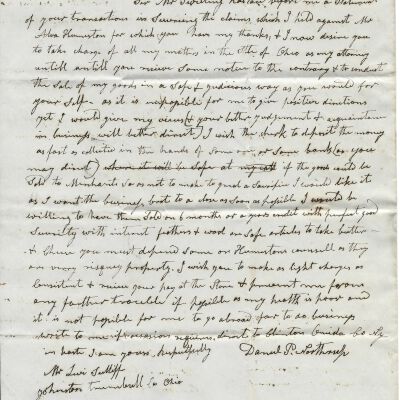 Sir Mr Sterling has laid before me a statement
of your transactions in securing the claims which I held against Mr
Alva Humiston for which you have my thanks, & I now desire you
to take charge of all my matters in the State of Ohio as my attorney
untill untill you recieve some notice to the contrary & to conduct
the sale of my goods in a safe & judicious way as you would for
your self - as it is impossible for me to give positive directions
yet I would give my views (& your better judgement & acquaintance
in business will better direct) I wish the clerk to deposit the money
as fast as collected in the hands of some or some bank (as you
may direct) where it will be safe if the goods could be
sold to Merchants so as not to make to great a sacrifice I would like it
as I want the business brot to a close as soon as possible I would be
willing to have them sold on 6 months or a years credit with perfect good
Security with interest feathers & wood are safe articles to take butter
& cheese you must depend some on Humistons counsell as they
are very risquey property. I wish you to make as light charges as
Consistent & recieve your pay at the Store & prevent me from
any further trouble if possible as my health is poor and
it is not possible for me to go abroad far to do business
write to me if occasion requires direct to Clinton Oneida Co Ny
in haste I am yours respectfully
Daniel P. Northrop
Mr Levi Sutliff
Johnston Trumbull Co Ohio